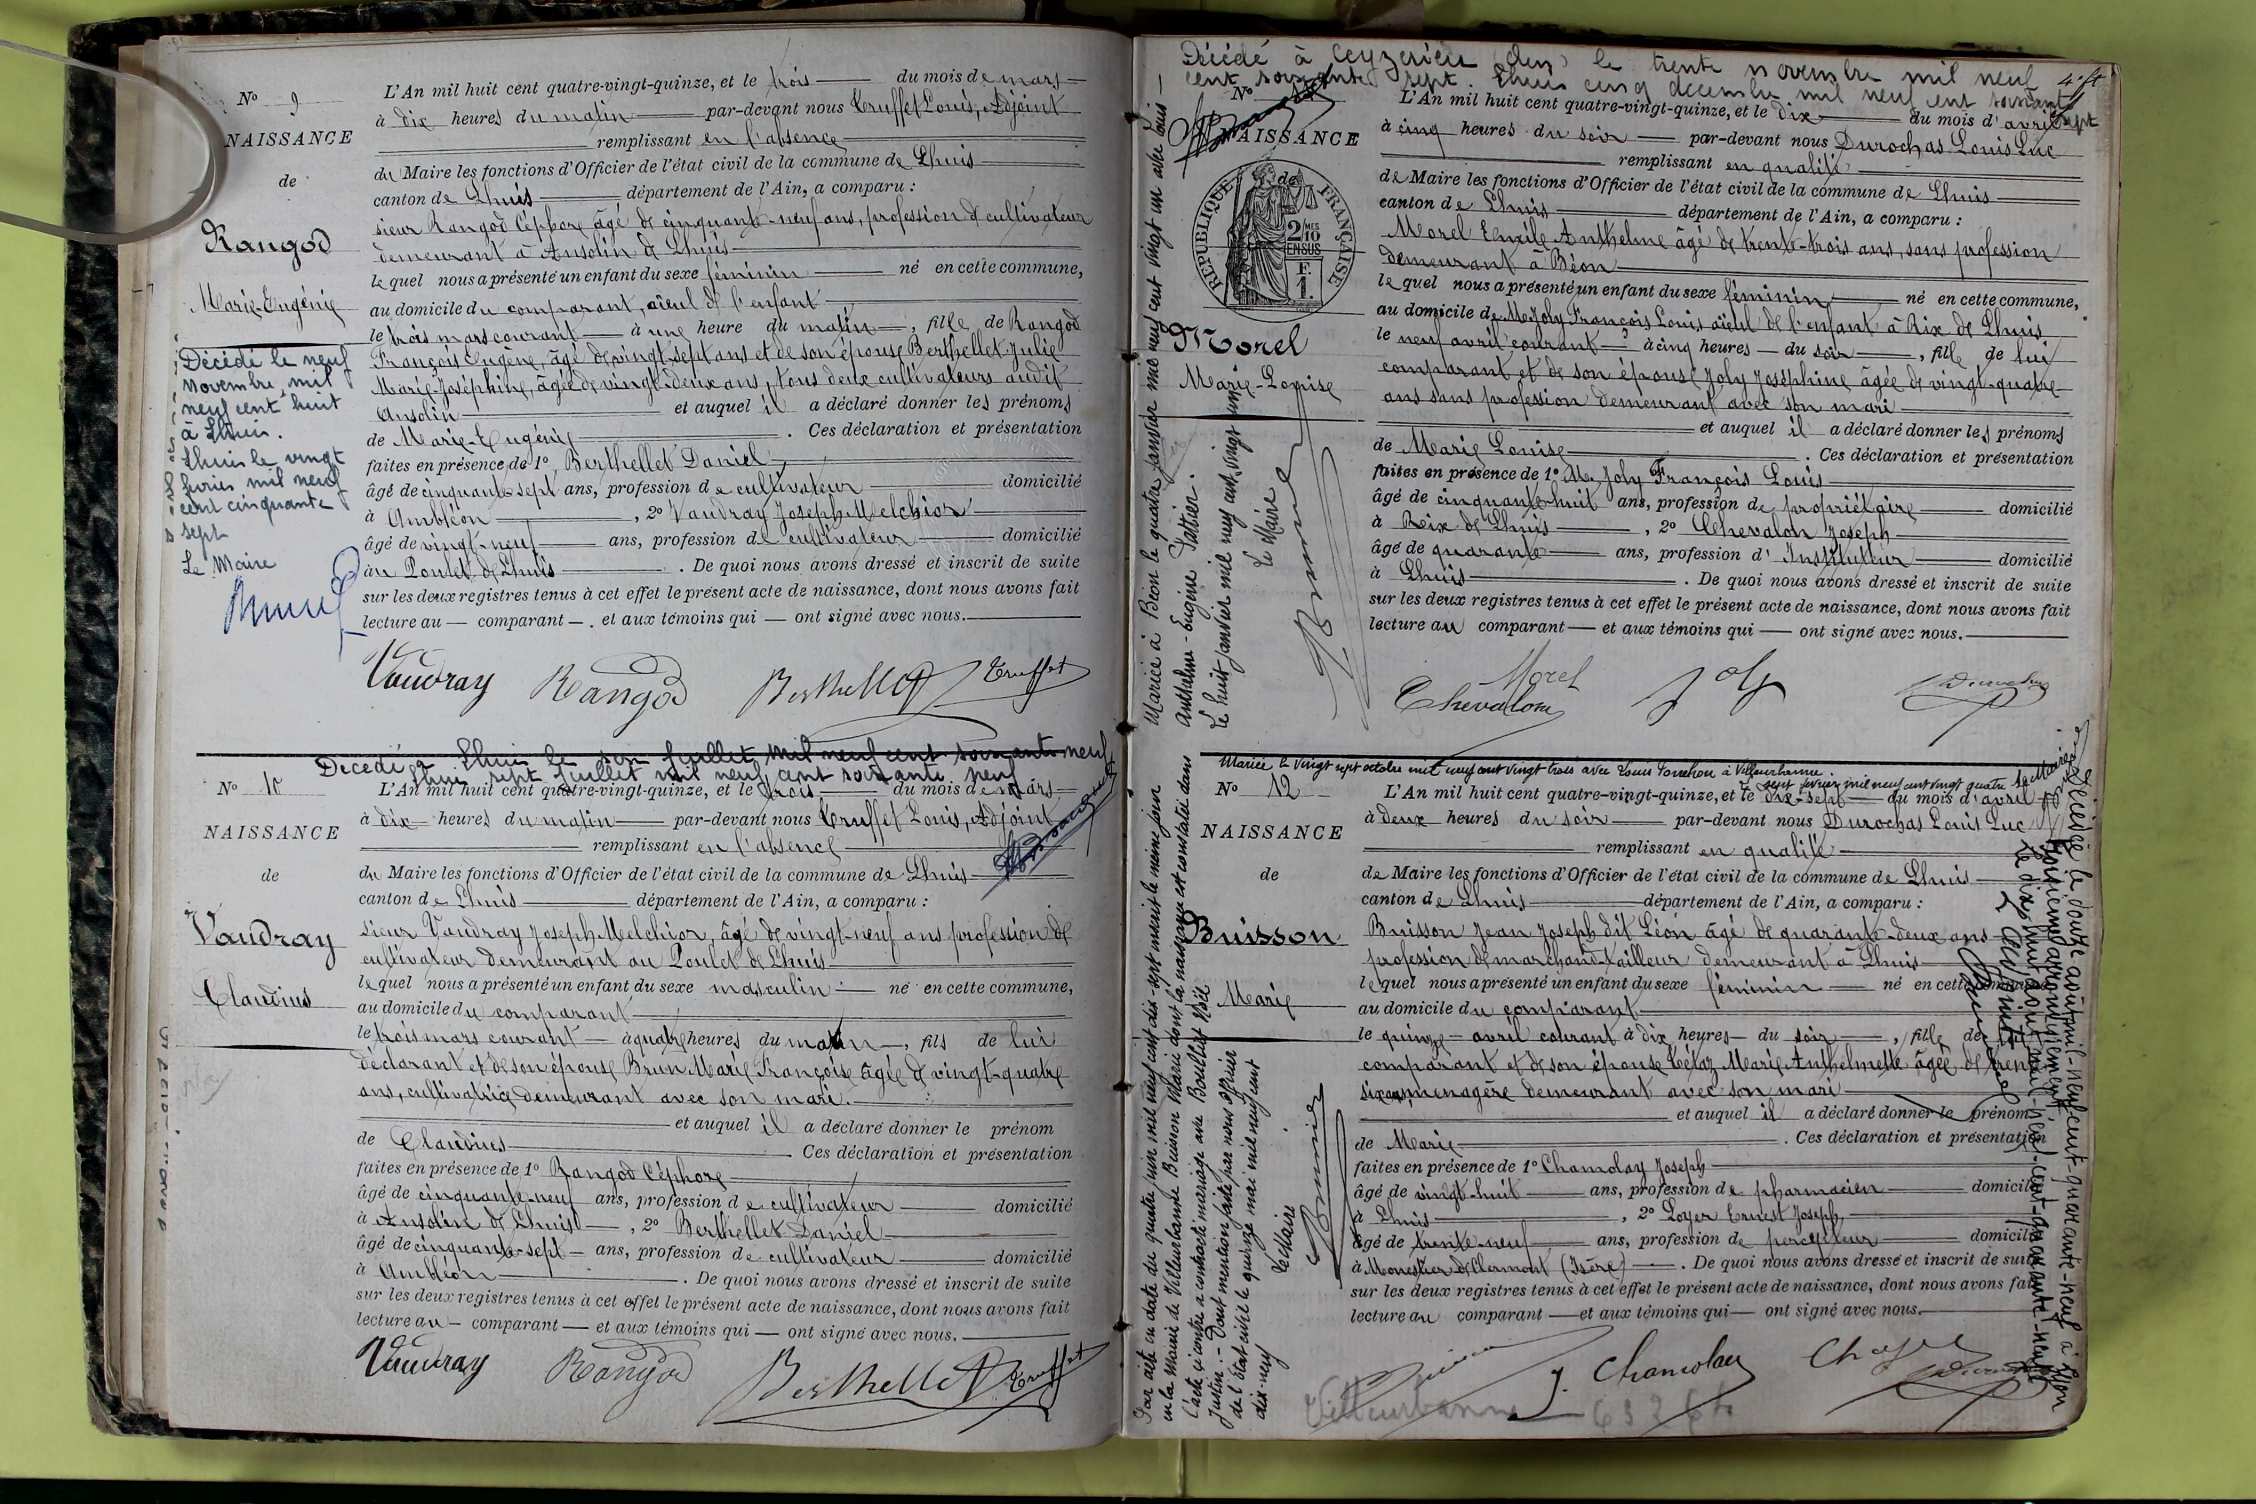 No 9
NAISSANCE
de
Rangod
Marie-Eugénie
Décédé le neuf
novembre mil
neuf cent huit
à Lhuis.
Lhuis le vingt
février mil neuf
cent cinquante
sept
Le Maire
L'An mil huit cent quatre-vingt-quinze, et le trois du mois de mars
à dix heures du matin par-devant nous Truffet Louis, Adjoint
remplissant en l'absence
du Maire les fonctions d'Officier de l'état civil de la commune de Lhuis
canton de Lhuis département de l'Ain, a comparu :
sieur Rangod Céphore âgé de cinquante-neuf ans, profession de cultivateur
demeurant à Ansolin de Lhuis
lequel nous a présenté un enfant du sexe féminin né en cette commune,
au domicile du comparant, aïeul de l'enfant
le trois mars courant à une heure du matin, fille de Rangod
François Eugène, âgé de vingt-sept ans et de son épouse Berthellet Julie
Marie Joséphine, âgée de vingt-deux ans, tous deux cultivateurs audit
Ansolin et auquel il a déclaré donner les prénoms
de Marie-Eugénie. Ces déclaration et présentation
faites en présence de 1o Berthellet Daniel
âgé de cinquante-sept ans, profession de cultivateur domicilié
à Ambléon, 2o Vaudray Joseph Melchior
âgé de vingt-neuf ans, profession de cultivateur domicilié
au Poulet de Lhuis. De quoi nous avons dressé et inscrit de suite
sur les deux registres tenus à cet effet le présent acte de naissance, dont nous avons fait
lecture au comparant. et aux témoins qui ont signé avec nous.
Vaudray Rangod Berthellet Truffet
Décédé à Lhuis le six juillet mil neuf cent soixante neuf
Lhuis sept juillet mil neuf cent soixante neuf
No 10
NAISSANCE
de
Vaudray
Claudius
L'An mil huit cent quatre-vingt-quinze, et le trois du mois de mars
à dix heures du matin par-devant nous Truffet Louis, Adjoint
remplissant en l'absence
du Maire les fonctions d'Officier de l'état civil de la commune de Lhuis
canton de Lhuis département de l'Ain, a comparu :
sieur Vaudray Joseph Melchior, âgé de vingt-neuf ans profession de
cultivateur demeurant au Poulet de Lhuis
lequel nous a présenté un enfant du sexe masculin né en cette commune,
au domicile du comparant
le trois mars courant à quatre heures du matin, fils de lui
déclarant et de son épouse Brun Marie Françoise âgée de vingt-quatre
ans, cultivatrice demeurant avec son mari.
et auquel il a déclaré donner le prénom
de Claudius Ces déclaration et présentation
faites en présence de 1o Rangod Céphore
âgé de cinquante-neuf ans, profession de cultivateur domicilié
à Ansolin de Lhuis, 2o Berthellet Daniel
âgé de cinquante-sept ans, profession de cultivateur domicilié
à Ambléon. De quoi nous avons dressé et inscrit de suite
sur les deux registres tenus à cet effet le présent acte de naissance, dont nous avons fait
lecture au comparant et aux témoins qui ont signé avec nous.
Vaudray Rangod Berthellet Truffet
Décédé à Ceyzérieu (Ain) le trente novembre mil neuf
cent soixante sept. Lhuis cinq décembre mil neuf cent soixante sept
4e ft
No 11
NAISSANCE
de
RÉPUBLIQUE FRANÇAISE
2 MES
10
EN SUS
F.
1.
Morel
Marie-Louise
Mariée à Béon le quatre janvier mil neuf cent vingt un avec Louis
Anthelme-Eugène Pattier.
Le huit janvier mil neuf cent vingt un
Le Maire
L'An mil huit cent quatre-vingt-quinze, et le dix du mois d'avril
à cinq heures du soir par-devant nous Durochas Louis Luc
remplissant en qualité
de Maire les fonctions d'Officier de l'état civil de la commune de Lhuis
canton de Lhuis département de l'Ain, a comparu :
Morel Emile Anthelme âgé de trente-trois ans, sans profession
demeurant à Béon
lequel nous a présenté un enfant du sexe féminin né en cette commune,
au domicile de M. Joly François Louis aïeul de l'enfant à Rix de Lhuis
le neuf avril courant à cinq heures du soir, fille de lui
comparant et de son épouse Joly Joséphine âgée de vingt-quatre
ans sans profession demeurant avec son mari
et auquel il a déclaré donner les prénoms
de Marie Louise. Ces déclaration et présentation
faites en présence de 1o M. Joly François Louis
âgé de cinquante-huit ans, profession de propriétaire domicilié
à Rix de Lhuis, 2o Chevalon Joseph
âgé de quarante ans, profession d'Instituteur domicilié
à Lhuis. De quoi nous avons dressé et inscrit de suite
sur les deux registres tenus à cet effet le présent acte de naissance, dont nous avons fait
lecture au comparant et aux témoins qui ont signé avec nous.
Morel
Chevalon Joly
Mariée le vingt sept octobre mil neuf cent vingt trois avec Louis à Villeurbanne.
sept février mil neuf cent vingt quatre Le Maire
No 12
NAISSANCE
de
Buisson
Marie
Par acte en date du quatre juin mil neuf cent dix-sept inscrit le meme jour
en la Mairie de Villeurbanne Buisson Marie dont la naissance est constatée dans
l'acte ci contre a contracté mariage avec Boullet Noël
Justin.- Dont mention faite par nous officier
de l'Etat civil le quinze mai mil neuf cent
dix-neuf
Le Maire
L'An mil huit cent quatre-vingt-quinze, et le dix-sept du mois d'avril
à deux heures du soir par-devant nous Durochas Louis Luc
remplissant en qualité
de Maire les fonctions d'Officier de l'état civil de la commune de Lhuis
canton de Lhuis département de l'Ain, a comparu :
Buisson Jean Joseph dit Léon âgé de quarante-deux ans
profession de marchand-tailleur demeurant à Lhuis
lequel nous a présenté un enfant du sexe féminin né en cette commune
au domicile du comparant
le quinze avril courant à dix heures du soir, fille de lui
comparant et de son épouse Tétaz Marie Anthelmette âgée de trente
six ans, menagère demeurant avec son mari
et auquel il a déclaré donner le prénom
de Marie. Ces déclaration et présentation
faites en présence de 1o Chamolay Joseph
âgé de vingt-huit ans, profession de pharmacien domicilié
à Lhuis, 2o Loyer Ernest Joseph
âgé de trente-neuf ans, profession de percepteur domicilié
à Monestier de Clermont (Isère). De quoi nous avons dressé et inscrit de suite
sur les deux registres tenus à cet effet le présent acte de naissance, dont nous avons fait
lecture au comparant et aux témoins qui ont signé avec nous.
J. Chamolay
Villeurbanne
Décédée le douze août mil-neuf-cent-quarante-neuf à Lyon
troisième arrondissement
Le dix huit août mil-neuf-cent-quarante-neuf